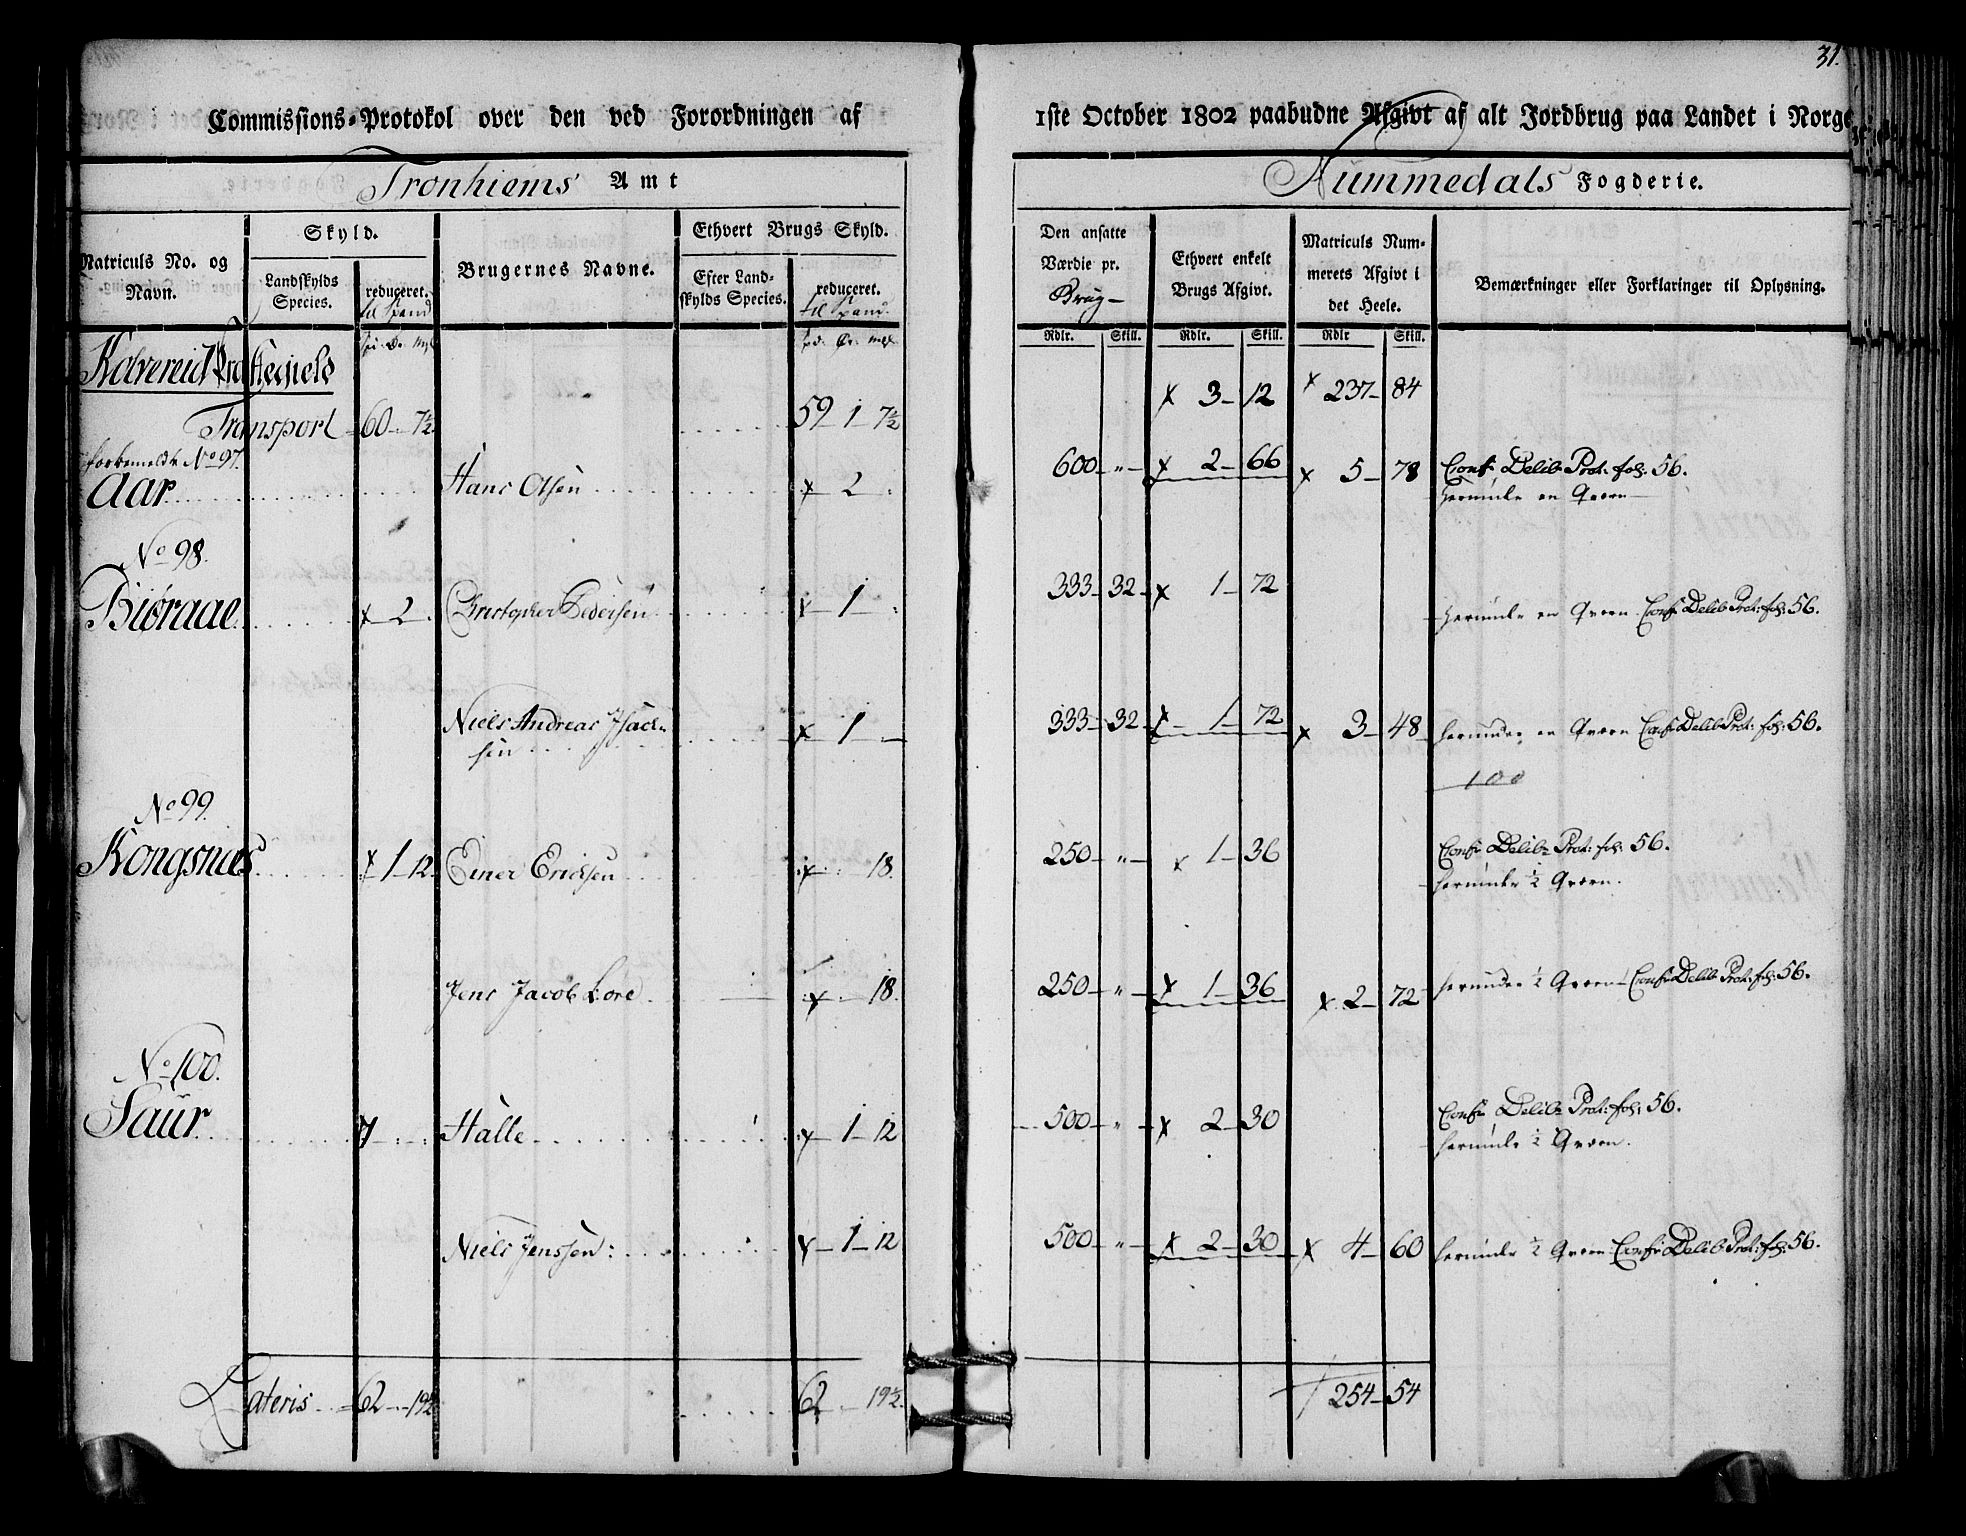 31.
Commissions-Protokol over den ved Forordningen af 1ste October 1802 paabudne Afgivt af alt Jordbrug paa Landet i Norge
Tronhiems Amt
Nummedals Fogderie.
Matriculs No. og Navn.
Skyld.
Landskylds Species.
reduceret.
til Spand
Brugernes Navne.
Ethvert Brugs Skyld.
Efter Landskylds Species.
reduceret.
til Spand.
Den ansatte Værdie pr. Brug
Ethvert enkelt Brugs Afgivt.
Matriculs Nummerets Afgivt i det Heele.
Bemærkninger eller Forklaringer til Oplysning.
Rdlr. Skill. Rdlr. Skill. Rdlr Skill.
Kolvereid
Transport 60 7½ 59 1 7½ x 3 12 x 237 84
No 97.
Aar Hans Olsen x 2 600 " x 2 66 x 5 78 Conf: Delib: Prot: fol: 56.
herunder en Qværn
No 98.
Biøraae x 2 Christopher Pedersen x 1 333 32 x 1 72 herunder en Qværn Conf: Delib: Prot: fol: 56.
Niels Andreas Isach-
sen x 1 333 32 x 1 72 x 3 48 herunder en Qværn Conf: Delib: Prot: fol: 56.
100
No 99.
Kongsnæs x 1 12 Einer Ericksen x 18. 250 " x 1 36 Conf: Delib: Prot: fol: 56.
herunder ½ Qværn.
Jens Jacob x 18. 250 " x 1 36 x 2 72 herunder ½ Qværn Conf: Delib: Prot: fol: 56.
No 100.
Saur Halle x 1 12 500 " x 2 30 Conf: Delib: Prot: fol: 56.
herunder ½ Qværn.
Niels Jenssen: x 1 12 500 " x 2 30 x 4 60 herunder ½ Qværn Conf: Delib: Prot: fol: 56.
Lateris 62 19½ 62 19½ 254 54